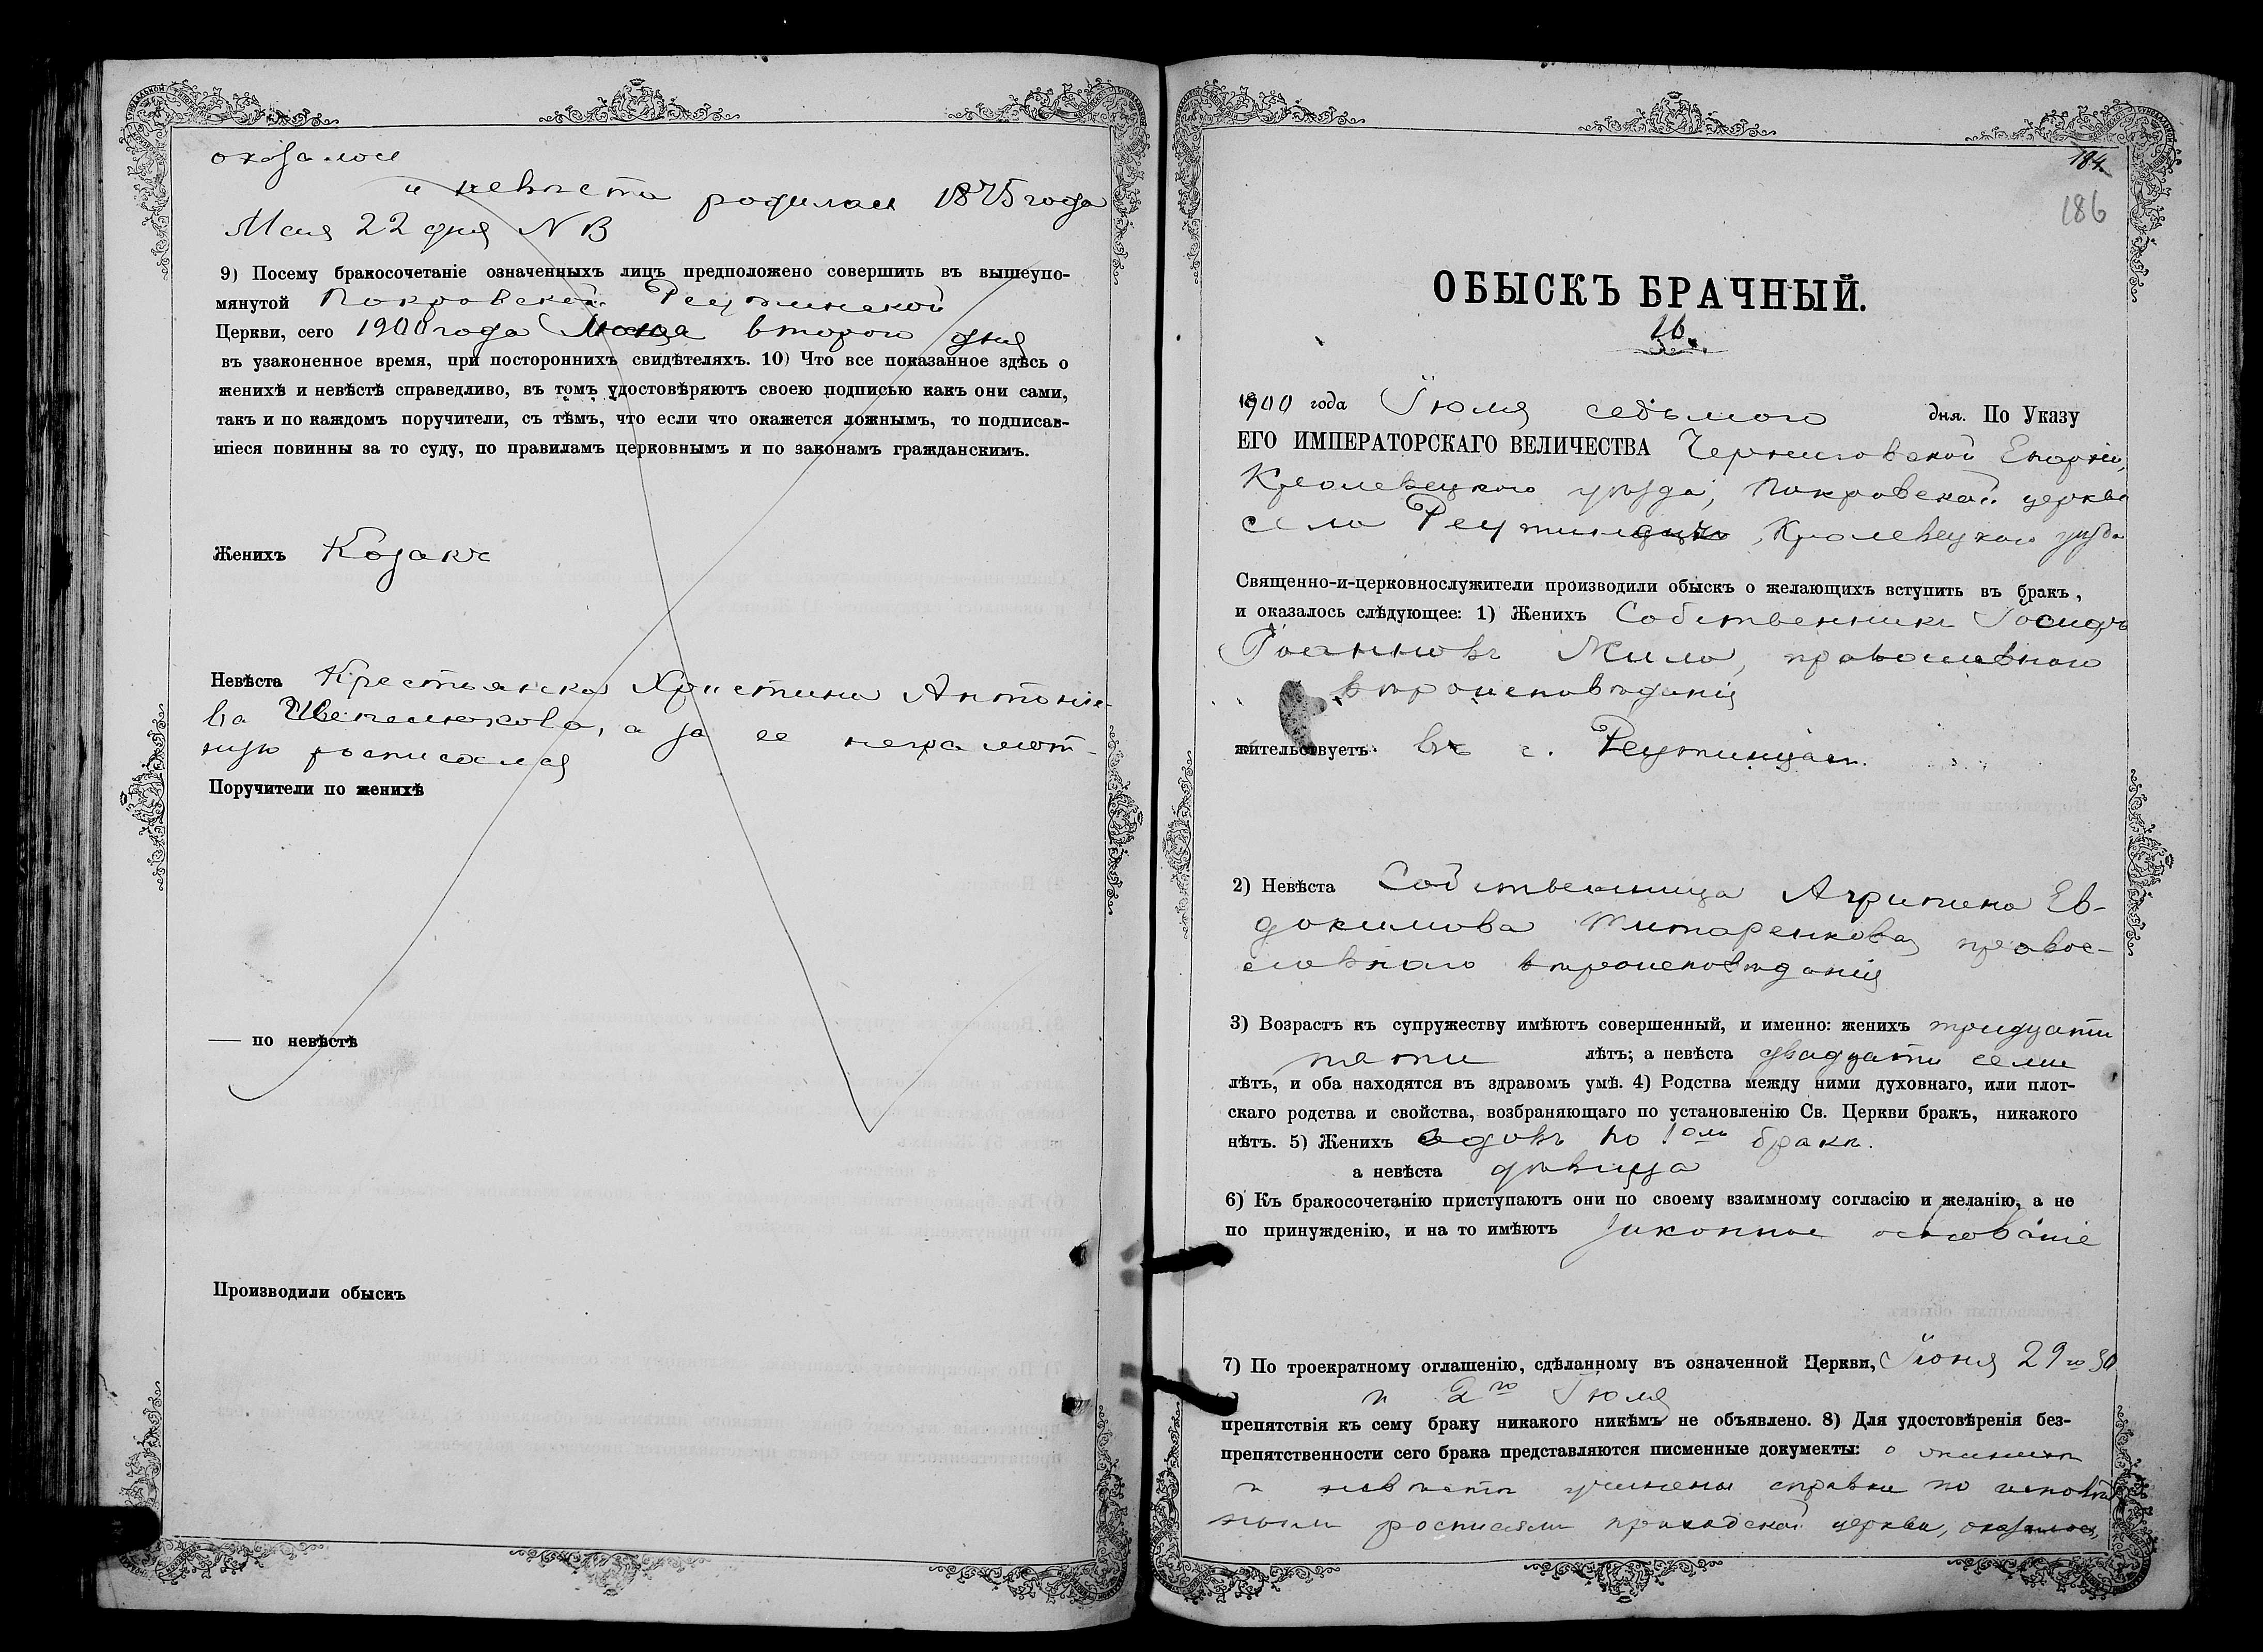 оказалося
и невѣста родилась 1875 года
Мая 22 дня NB
9) Посему бракосочетаніе означенныхъ лицъ предположено совершить въ вышеупо-
мянутой Покровской Реутинской
Церкви, сего 1900 года второго дня
въ узаконенное время, при постороннихъ свидѣтеляхъ. 10) Что все показанное здѣсь о
женихѣ и невѣстѣ справедливо, въ томъ удостовѣряютъ своею подписью какъ они сами,
такъ и по каждомъ поручители, съ тѣмъ, что если что окажется ложнымъ, то подписав-
шіеся повинны за то суду, по правиламъ церковнымъ и по законамъ гражданскимъ.
Женихъ Козакъ
Невѣста Крестьянка Христина Антоніе-
ва а за ее неграмот-
ную росписался
Поручители по женихѣ
— по невѣстѣ
Производили обыскъ
184
186
ОБЫСКЪ БРАЧНЫЙ.
16.
1900 года Іюля седьмого дня. По Указу
ЕГО ИМПЕРАТОРСКАГО ВЕЛИЧЕСТВА Черниговской Епархіи,
Кролевецкого уѣзда, Покровской церкви
села Кролевецкого уѣзда
Священно-и-церковнослужители производили обыскъ о желающихъ вступить въ бракъ,
и оказалось слѣдующее: 1) Женихъ Собственникъ Іосифъ
Іоанновъ Жило, православного
вѣроисповѣданія
жительствуетъ въ с. Реутинцахъ.
2) Невѣста Собственница Агрипина Ев-
докимова Титаренкова правос-
лавного вѣроисповѣданія
3) Возрастъ къ супружеству имѣютъ совершенный, и именно: женихъ тридцати
пяти лѣтъ; а невѣста двадцати семи
лѣтъ, и оба находятся въ здравомъ умѣ. 4) Родства между ними духовнаго, или плот-
скаго родства и свойства, возбраняющаго по установленію Св. Церкви бракъ, никакого
нѣтъ. 5) Женихъ вдовъ по 1омъ бракѣ.
а невѣста дѣвица
6) Къ бракосочетанію приступаютъ они по своему взаимному согласію и желанію, а не
по принужденію, и на то имѣютъ законное основаніе
7) По троекратному оглашенію, сдѣланному въ означенной Церкви, Іюня 29го 30
и 2го Іюля
препятствія къ сему браку никакого никѣмъ не объявлено. 8) Для удостовѣренія без-
препятственности сего брака представляются писменные документы: о женихѣ
и невѣстѣ учинены справки по исповѣд
нымъ росписямъ приходской церкви, оказалось,